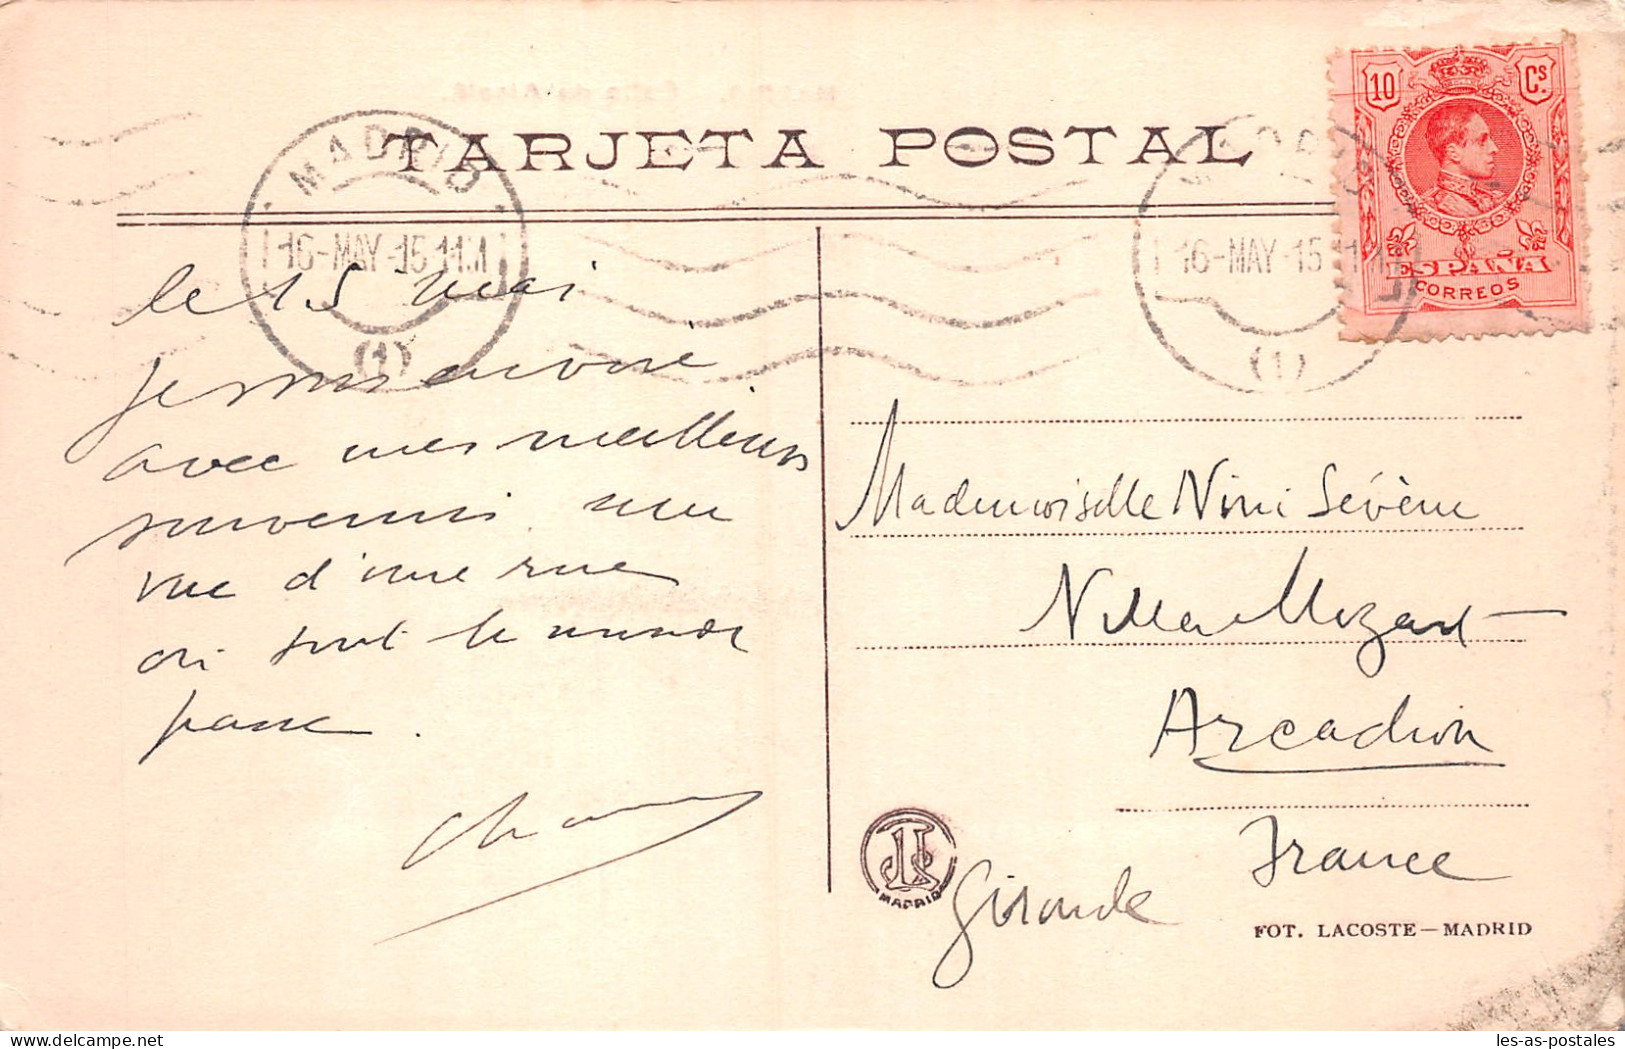 TARJETA POSTAL
MADRID
16-MAY-15
(1)
16-MAY-15
(1)
10 Cs
ESPAÑA
CORREOS
le 15 mai
Je vous envoie
avec mes meilleurs
souvenirs une
vue d'une rue
où tout le monde
passe.
Mademoiselle Nini Sévène
Villa Mozart
Arcachon
France
Gironde
MADRID
FOT. LACOSTE—MADRID
les-as-postales